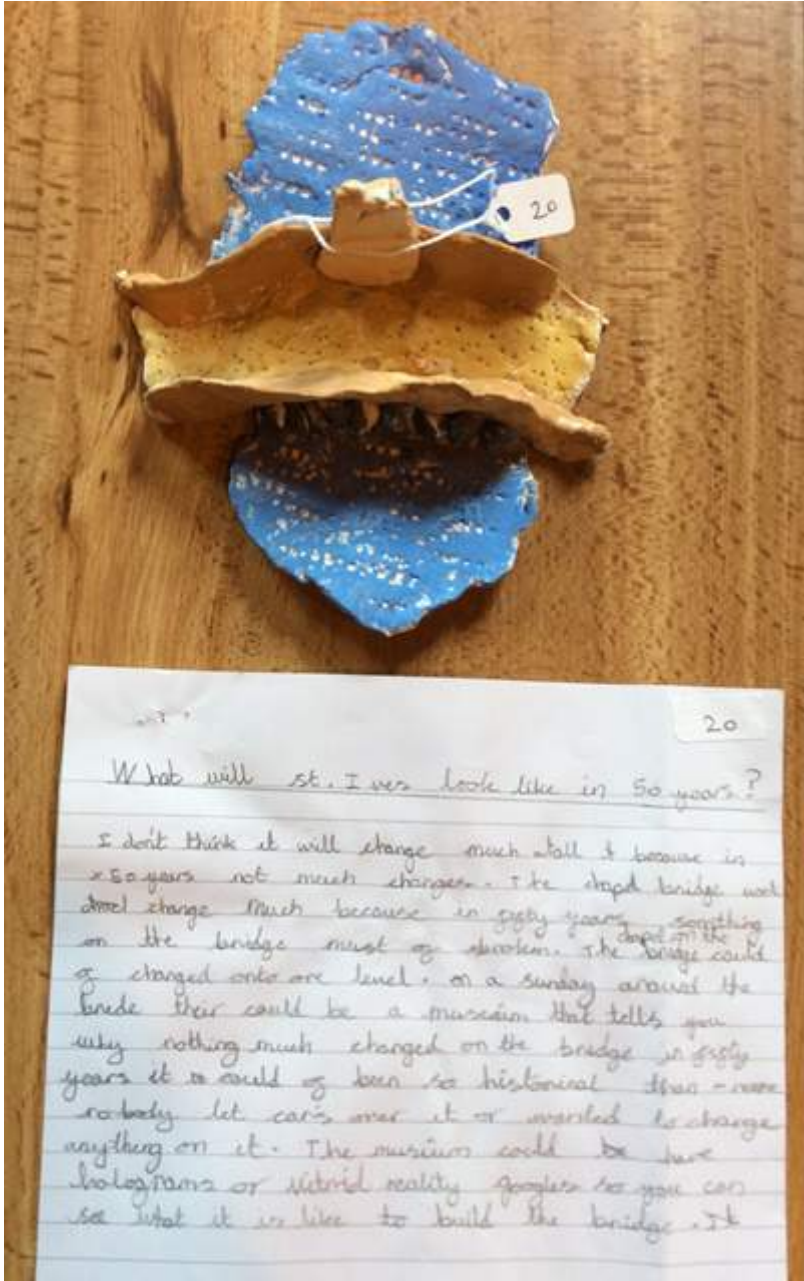 20
20
What will st. Ives look like in 50 years?
I don't think it will change much atall & because in
x 50 years not much changes. The chapel bridge wont
change much because in fifty years somthing
on the bridge must of broken. The chapel on the bridge could
of changed onto one level. on a sunday around the
bride their could be a museium that tells you
why nothing much changed on the bridge in fifty
years it could of been so historical than
nobody let cars over it or wanted to change
anything on it. The museium could have
holograms or reality googles so you can
see what it is like to build the bridge. It